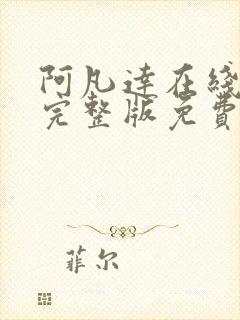 阿凡達在綫
完整版免費
菲尔